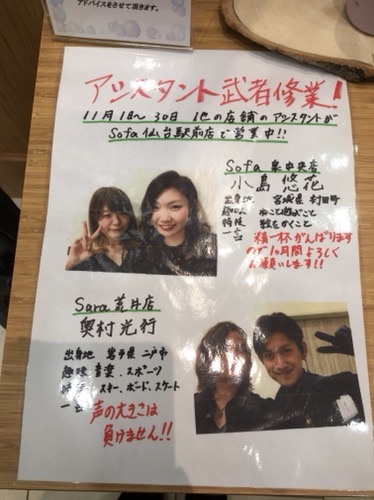 アドバイスをさせて頂きます。
アシスタント武者修業!
11月1日〜30日 他の店舗のアシスタントが
Sofa仙台駅前店で営業中!!
Sofa 泉中央店
小島 悠花
出身地 宮城県 村田町
趣味 ねこと遊ぶこと
特技 歌をかくこと
一言 精一杯がんばります
ので1ヶ月間よろしく
お願いします!!
Sara 荒井店
奥村光行
出身地 岩手県 二戸市
趣味 音楽、スポーツ
特技 スキー、ボード、スケート
一言 声の大きさは
負けません!!